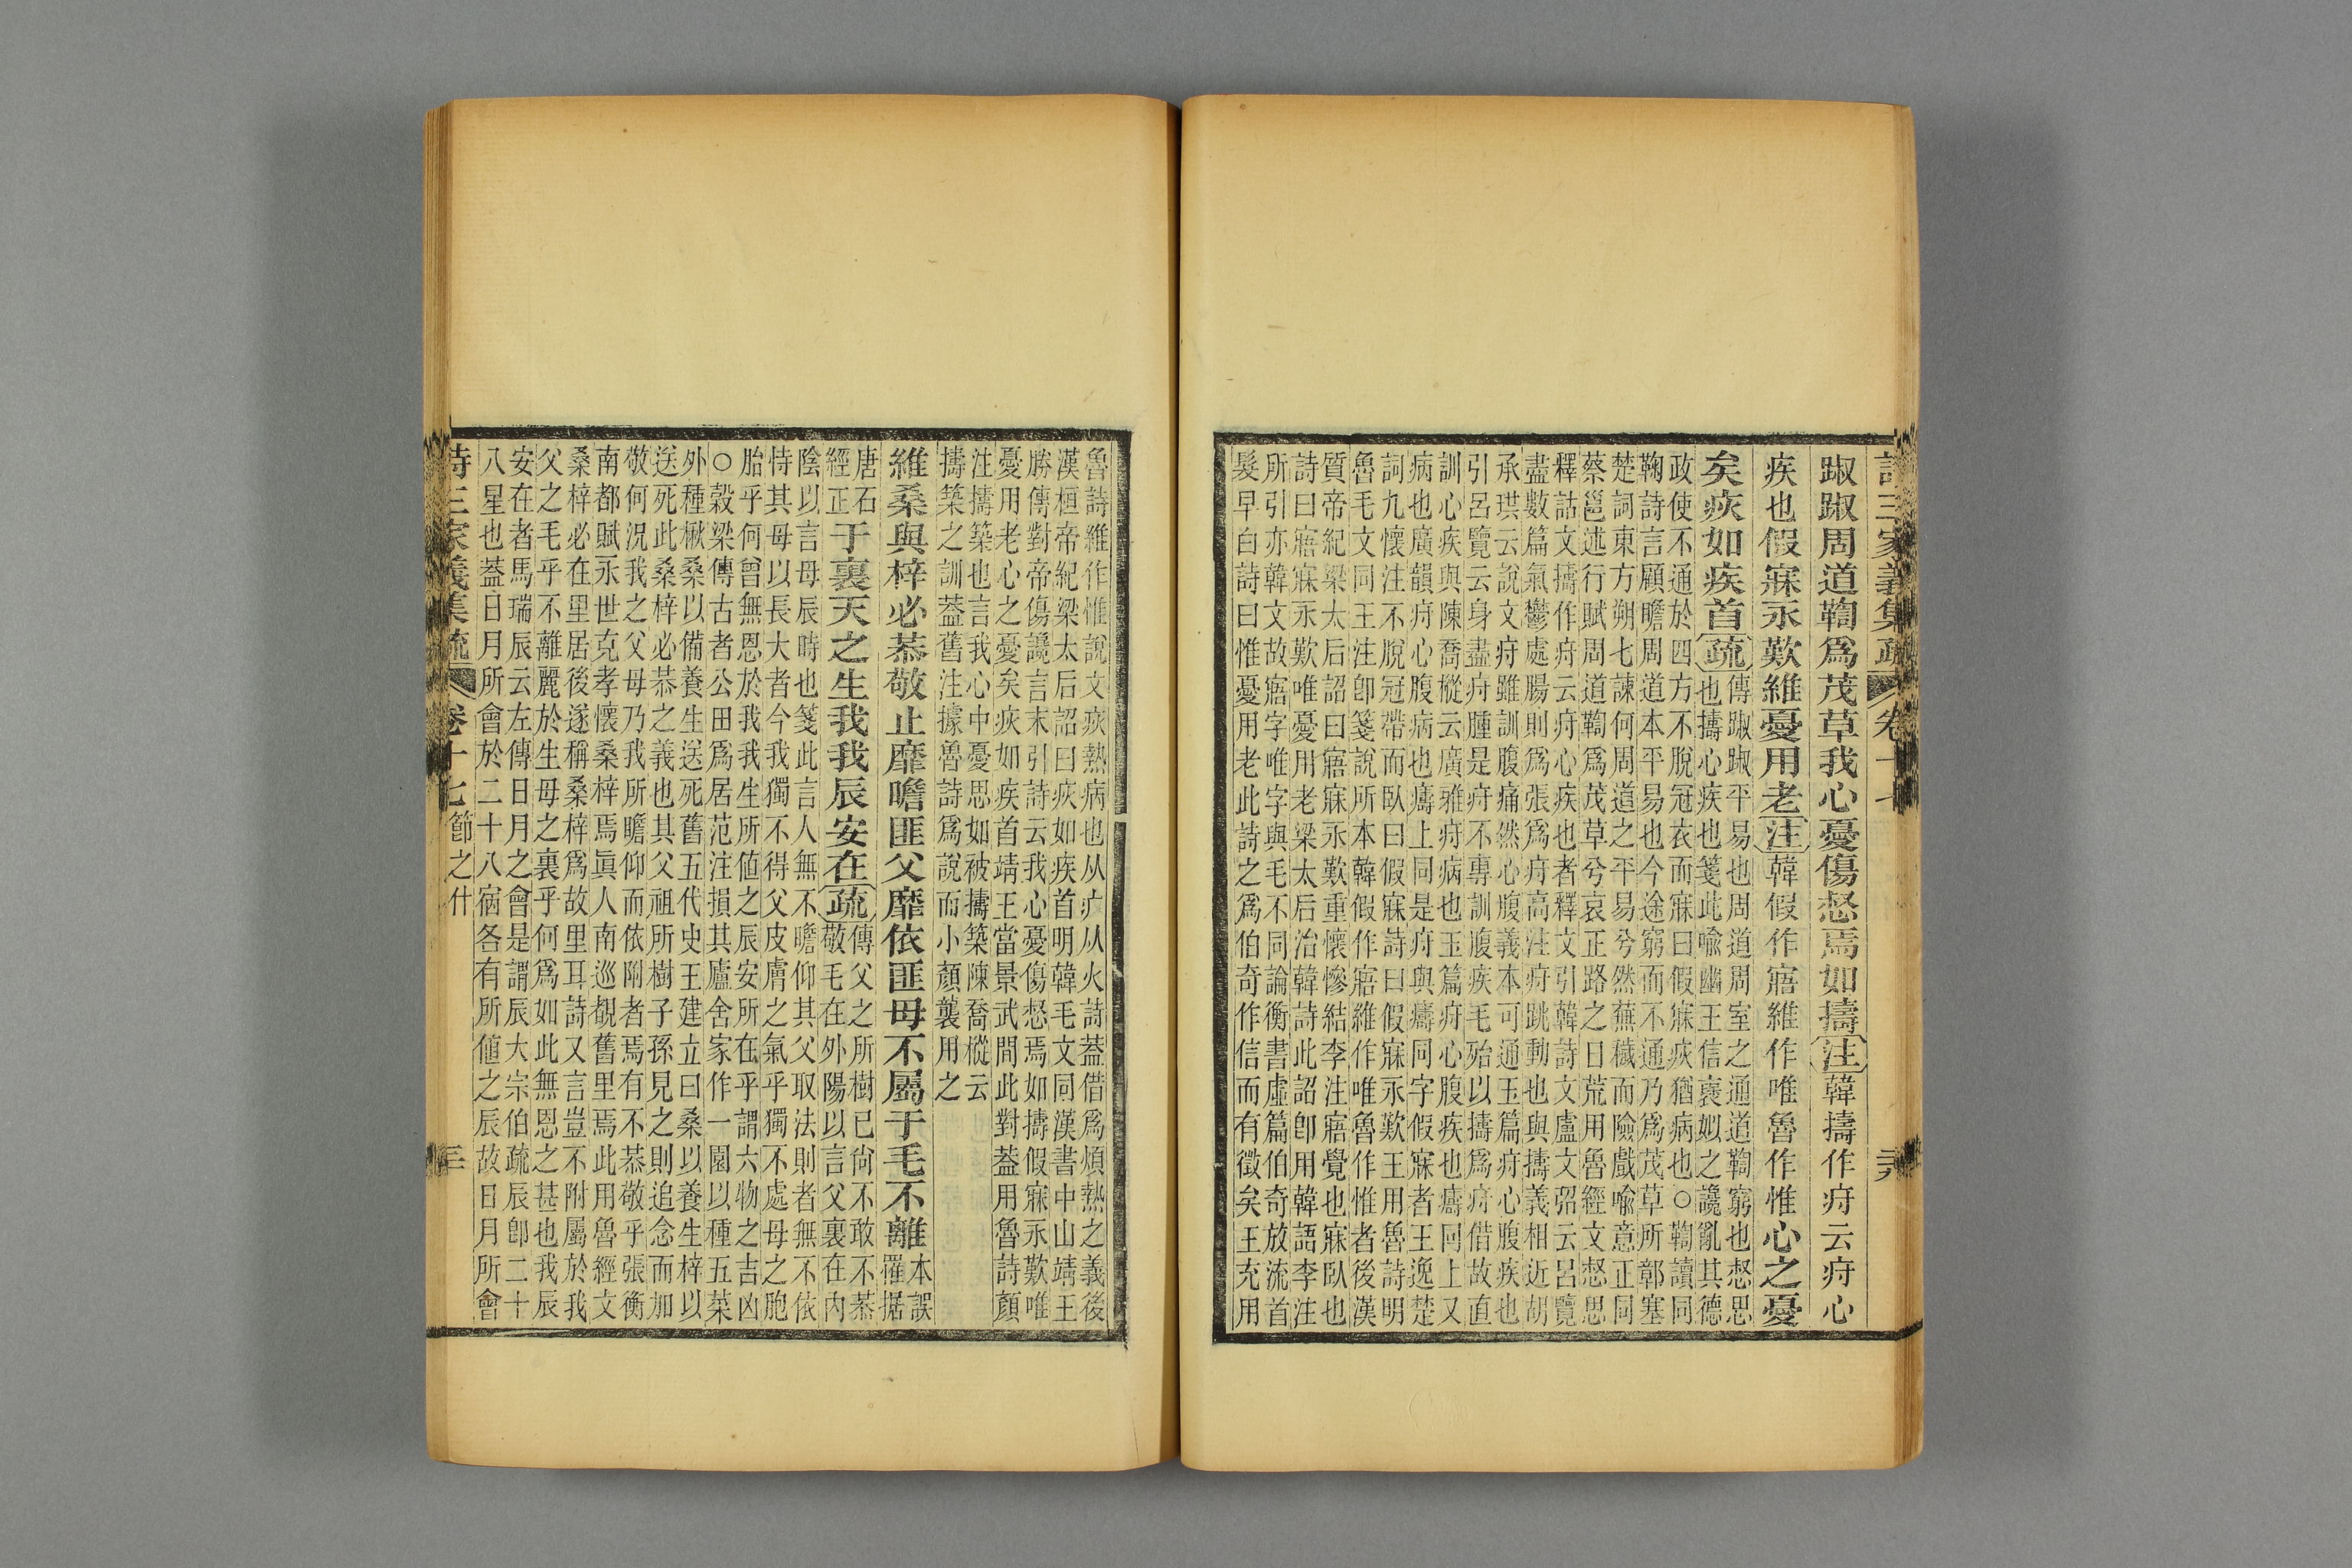 詩三家義集疏 卷十七
踧踧周道鞫爲茂草我心憂傷惄焉如擣注韓擣作疛云疛心
疾也假寐永歎維憂用老注韓假作寤維作唯魯作惟心之憂
矣疢如疾首疏傳踧踧平易也周道周室之通道鞫窮也惄思
也擣心疾也箋此喻幽王信襃姒之讒亂其德
政使不通於四方不脫冠衣而寐曰假寐疢猶病也○鞫讀同
鞫詩言顧瞻周道本平易也今途窮而不通乃爲茂草所鄣塞
楚詞東方朔七諫何周道之平易兮然蕪穢而險戲喻意正同
蔡邕述行賦周道鞫爲茂草兮哀正路之日荒用魯經文惄思
釋詁文擣作疛云疛心疾也者釋文引韓詩文盧文弨云呂覽
盡數篇氣鬱處腸則爲張爲疛高注疛跳動也與擣義相近胡
承珙云說文疛雖訓腹痛然心腹義本可通玉篇疛心腹疾也
引呂覽云身盡疛腫是疛不專訓腹疾毛殆以擣爲疛借故直
訓心疾與陳喬樅云廣雅疛病也玉篇疛心腹疾也㿒同上又
病也廣韻疛心腹病也㿒上同是疛與㿒同字假寐者王逸楚
詞九懷注不脫冠帶而臥曰假寐詩曰假寐永歎王用魯詩明
魯毛文同王注卽箋說所本韓假作寤維作唯魯作惟者後漢
質帝紀梁太后詔曰寤寐永歎重懷慘結李注寤覺也寐臥也
詩曰寤寐永歎唯憂用老梁太后治韓詩此詔卽用韓語李注
所引亦韓文故寤字唯字與毛不同論衡書虛篇伯奇放流首
髮早白詩曰惟憂用老此詩之爲伯奇作信而有徵矣王充用
魯詩維作惟說文疢熱病也从疒从火詩蓋借爲煩熱之義後
漢桓帝紀梁太后詔曰疢如疾首明韓毛文同漢書中山靖王
勝傳對帝傷讒言末引詩云我心憂傷惄焉如擣假寐永歎唯
憂用老心之憂矣疢如疾首靖王當景武間此對蓋用魯詩顏
注擣築也言我心中憂思如被擣築陳喬樅云
擣築之訓蓋舊注據魯詩爲說而小顏襲用之
維桑與梓必恭敬止靡瞻匪父靡依匪母不屬于毛不離本誤
罹据
唐石
經正于裏天之生我我辰安在疏傳父之所樹已尙不敢不恭
敬毛在外陽以言父裏在內
陰以言母辰時也箋此言人無不瞻仰其父取法則者無不依
恃其母以長大者今我獨不得父皮膚之氣乎獨不處母之胞
胎乎何曾無恩於我我生所値之辰安所在乎謂六物之吉凶
○穀梁傳古者公田爲居范注損其廬舍家作一園以種五菜
外種楸桑以備養生送死舊五代史王建立曰桑以養生梓以
送死此桑梓必恭之義也其父祖所樹子孫見之則追念而加
敬何況我之父母乃我所瞻仰而依附者焉有不恭敬乎張衡
南都賦永世克孝懷桑梓焉眞人南巡覩舊里焉此用魯經文
桑梓必在里居後遂稱桑梓爲故里耳詩又言豈不附屬於我
父之毛乎不離麗於生母之裏乎何爲如此無恩之甚也我辰
安在者馬瑞辰云左傳日月之會是謂辰大宗伯疏辰卽二十
八星也蓋日月所會於二十八宿各有所値之辰故日月所會
詩三家義集疏 卷十七 節之什